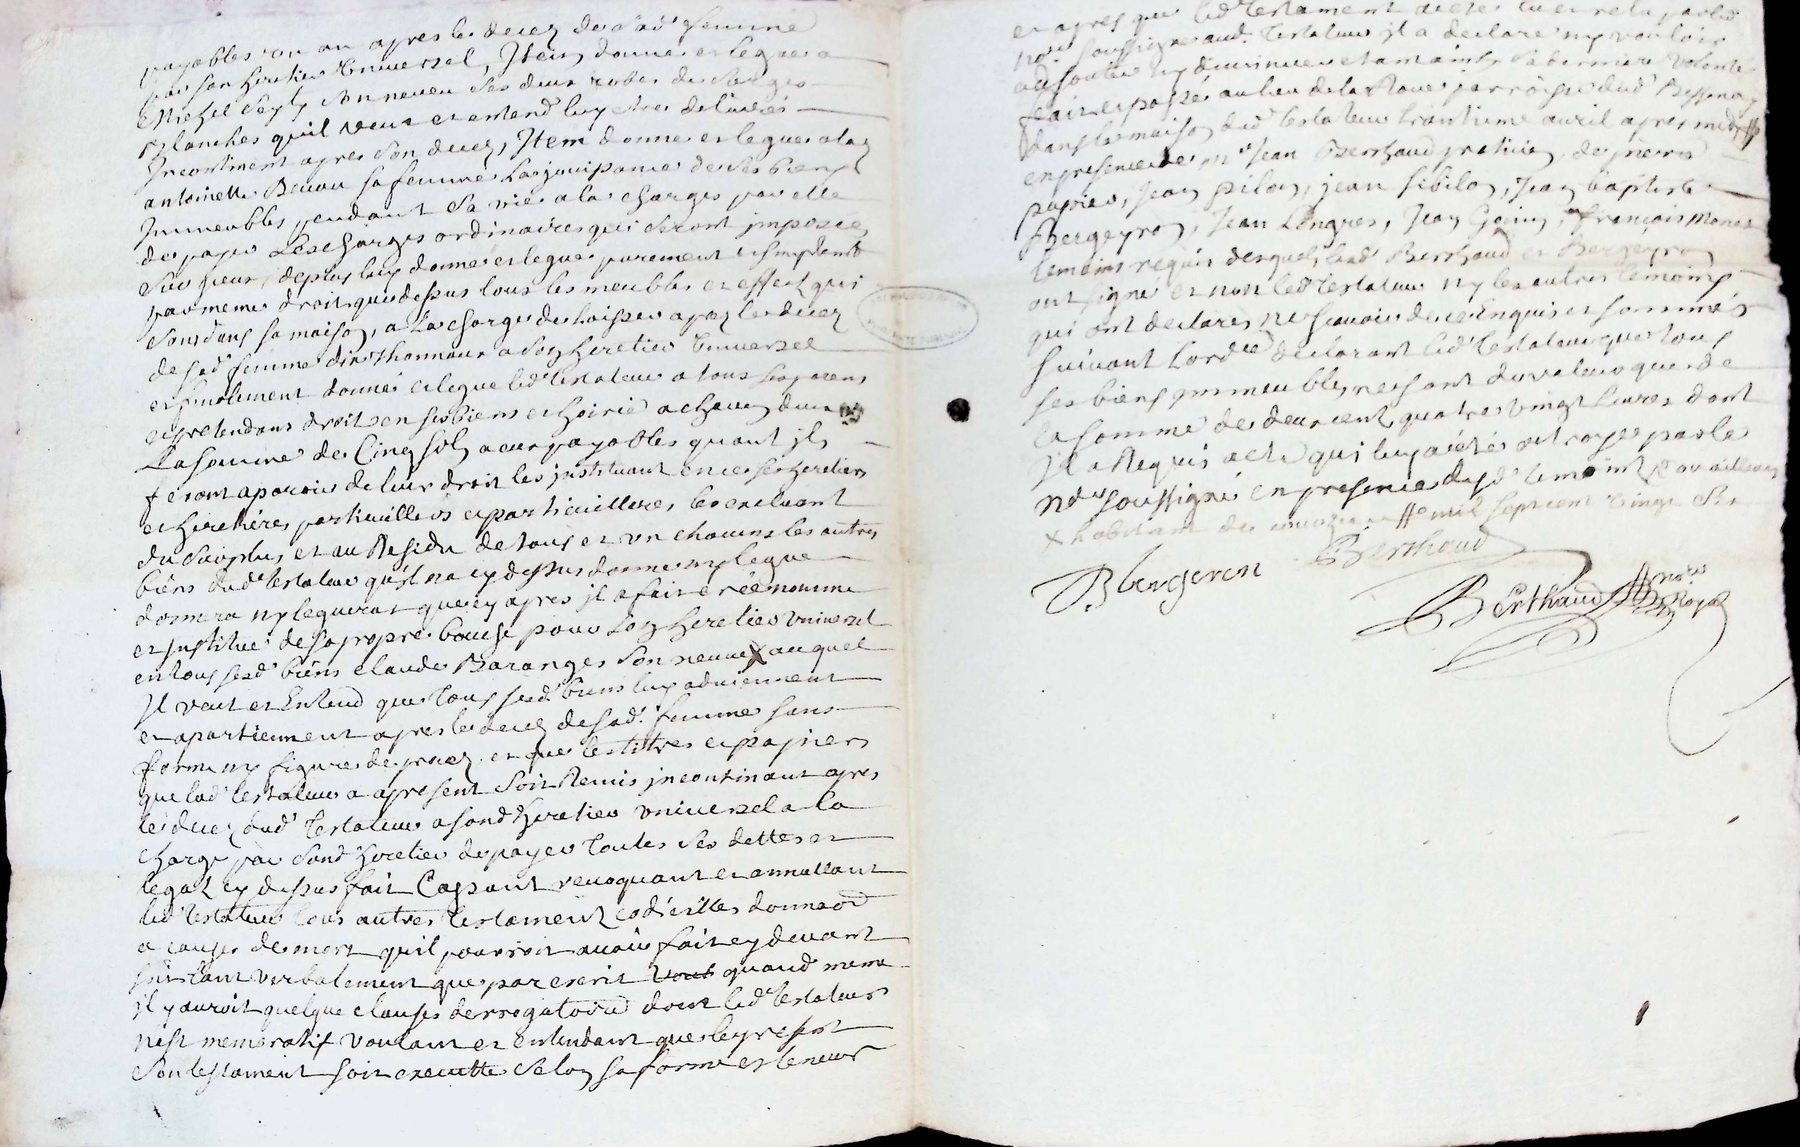 payables un an apres le decez de sad femme
par son heretier universel, Item donne et legue a
Michel son neveu ses deux robes de serges
blanches quil veut et entend luy etre delivrés
Incontinent apres son decez, Item donne et legue alad
antoinette sa femme la jouissance de ses biens
Immeubles pendant sa vie a la charges par elle
de payer Les charges ordinaires qui seront imposees
sur iceux, de plus luy donne et legue purement et simplemt
par meme droit que dessus tous les meubles et effects qui
sont dans sa maison, a La charge de laisser apres le decez
de sad femme a son heretier universel
et finalement donne et legue led testateur a tous ses parens
et pretendans droit en ses biens et hoirie a chacun deux
La somme de Cinq sols a eux payables quant ils
feront aparoir de leur droit les instituant en ce ses heretiers
et heretieres particulliers et particullieres les excluant
du surplus et au Residu de tous et un chacuns les autres
biens dud testateur quil na cy dessus donné ny legué
donnera ny leguerat que cy apres il a fait créé nomme
et Institue de sa propre bouche pour son heretier universel
en tous sesd biens claude Baranges son neveu auquel
Il veut et Entend que tous sesd biens luy adviennent
et apartiennent apres le decez de sad femme sans
forme ny figure de procez et que les titres et papiers
que led testateur a apresent soit Remis incontinant apres
le decez dud testateur a sond heretier universel a la
charge par sond heretier de payer toutes ses dettes et
legats cy dessus fait Cassant revoquant et annullant
led testateur tous autres testaments codicilles donnaon
a cause de mort quil pourroit avoir fait cy devant
soit tant verbalement que par escrit quand meme
il y auroit quelque clauses derrogatoire dont led testateur
nest memoratif voulant et entendant que le present
son testament soit execute selon sa forme et teneur
et apres que led testament a ete lu et relu par led
nore soussigne aud testateur il a declare ny vouloir
adjouter ny diminuer et sa derniere volonté
fait et passé au lieu de la parroisse dud
dans la maison dud testateur avril apres midy
en presence de mre Jean Berthaud praticien, de pierre
papier, Jean pilon, jean sibilon, Jean baptiste
Bergeyron, Jean Longres, Jean, françois
temoins requis desquels lesd Berthaud et Bergeyron
ont signe et non led testateur ny les autres temoings
qui ont declarez ne scavoir de ce Enquis et sommés
suivant Lordce declarant led testateur que tous
ses biens immeubles ne sont de valeur que de
la somme de deux cent quatre vingt livres dont
il a Requis acte qui luy a été octroyé par le
nore soussigné en presence desd temoins
x habitant de mil sept cent vingt six
Bergeron Berthaud
Berthaud nore Royal